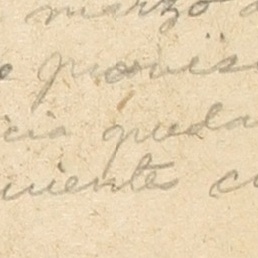 marzo
provis
cia queda
nientes c